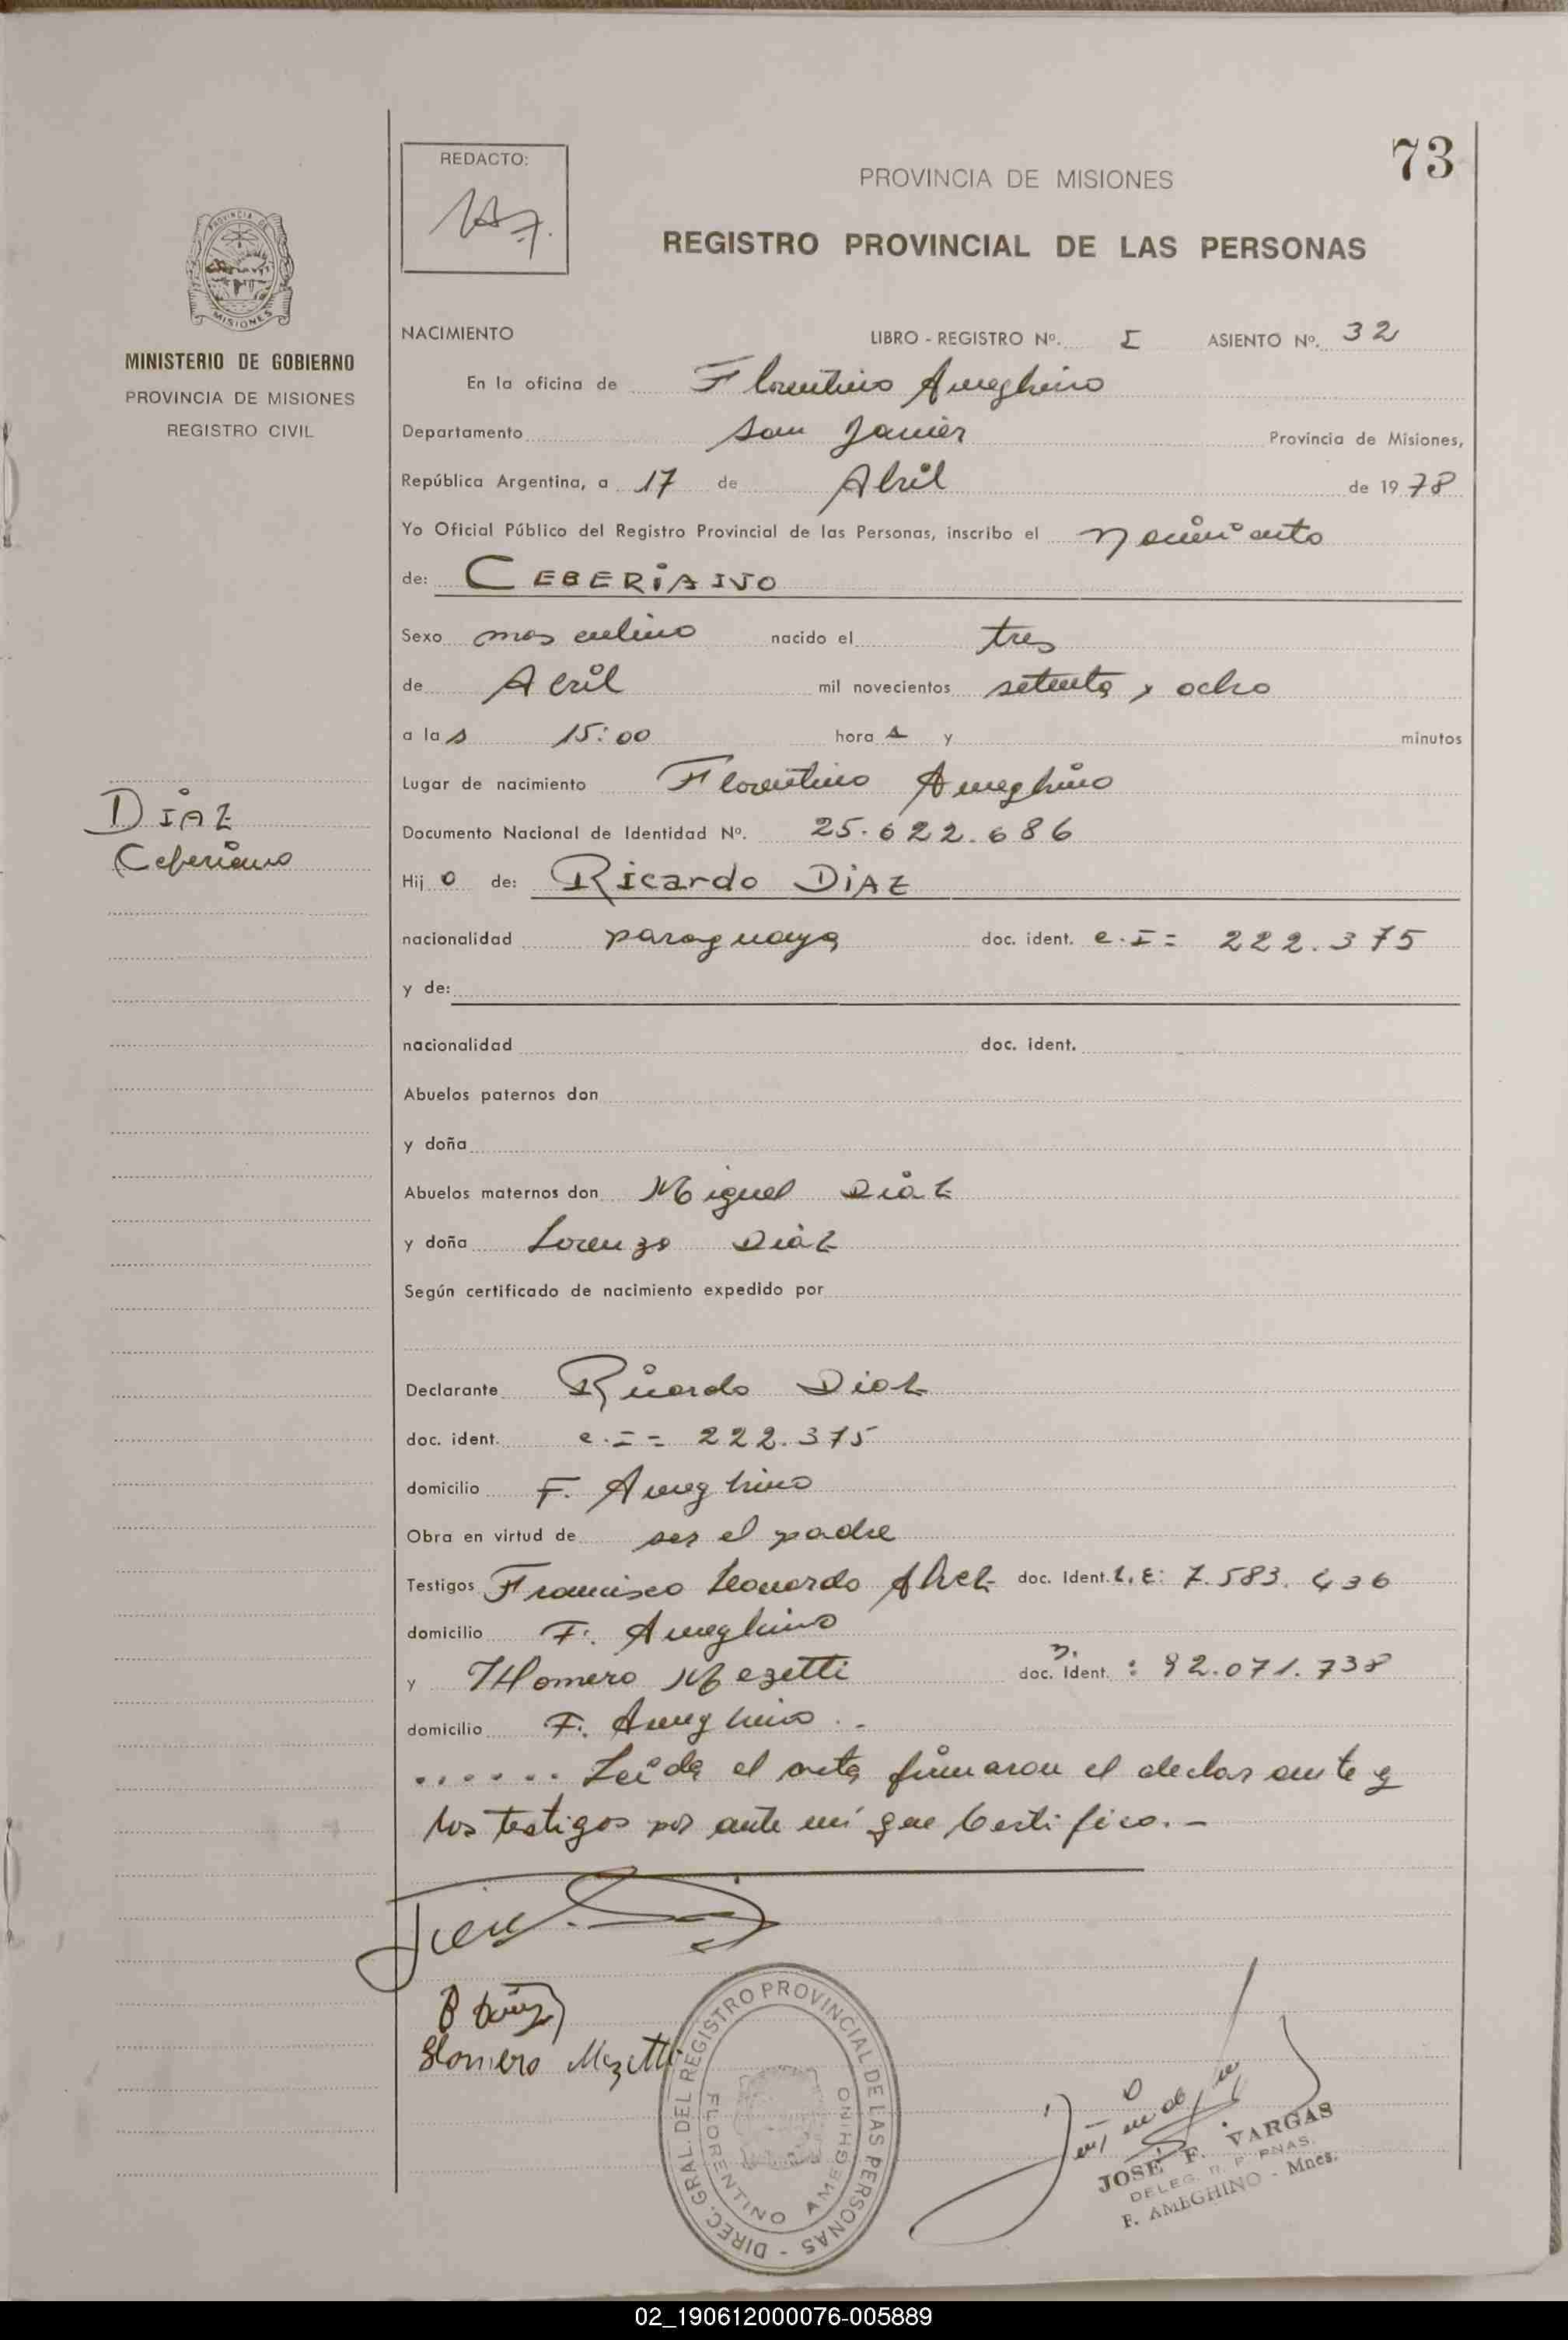 73
REDACTO:
PROVINCIA DE MISIONES
REGISTRO PROVINCIAL DE LAS PERSONAS
PROVINCIA DE MISIONES
MINISTERIO DE GOBIERNO
PROVINCIA DE MISIONES
REGISTRO CIVIL
NACIMIENTO LIBRO - REGISTRO Nº. I ASIENTO Nº. 32
En la oficina de Florentino Ameghino
Departamento San Javier Provincia de Misiones,
República Argentina, a 17 de Abril de 1978
Yo Oficial Público del Registro Provincial de las Personas, inscribo el nacimiento
de: CEBERiANO
Sexo masculino nacido el tres
de Abril mil novecientos setenta y ocho
a las 15:00 horas y minutos
Lugar de nacimiento Florentino Ameghino
DiAZ
Ceferiano
Documento Nacional de Identidad Nº. 25.622.686
Hijo de: Ricardo DiAZ
nacionalidad paraguaya doc. ident. c.I= 222.375
y de:
nacionalidad doc. ident.
Abuelos paternos don
y doña
Abuelos maternos don Miguel Diaz
y doña Lorenza Diaz
Según certificado de nacimiento expedido por
Declarante Ricardo Diaz
doc. ident. c.I= 222.375
domicilio F. Ameghino
Obra en virtud de ser el padre
Testigos Francisco Leonardo doc. Ident. L.E: 7.583.436
domicilio F. Ameghino
y Homero Mezetti doc. Ident. : 92.071.738
domicilio F. Ameghino . .
....... Leida el acta firmaron el declarante y
los testigos por ante mi que Certifico.-
Homero Mezetti
DIREC. GRAL. DEL REGISTRO PROVINCIAL DE LAS PERSONAS -
FLORENTINO AMEGHINO
JOSE F. VARGAS
DELEG. R. P. PNAS.
F. AMEGHINO - Mnes.
02_190612000076-005889